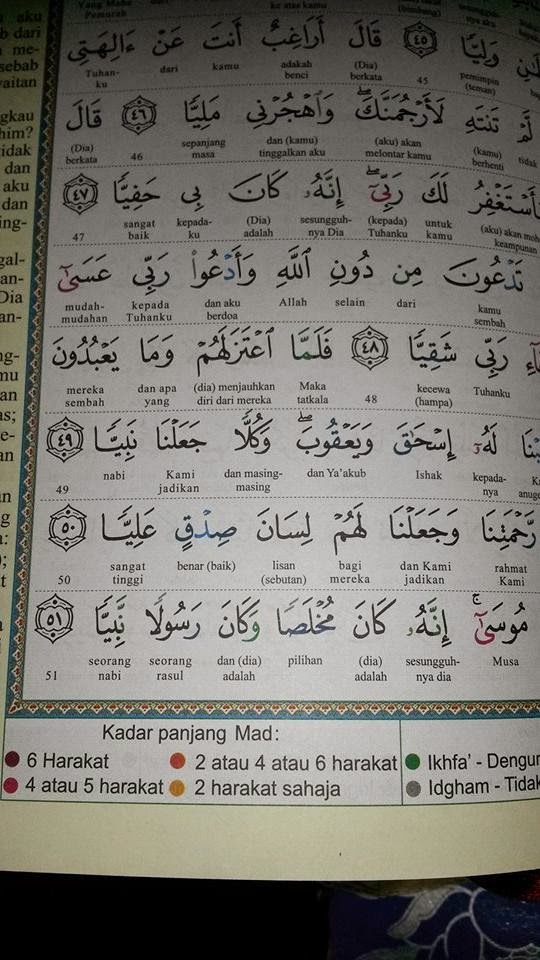 Yang Maha
Pemurah
ke atas kamu
وَلِيًّا ٤٥ قَالَ أَرَاغِبٌ أَنتَ عَنْ ءَالِهَتِى
pemimpin (teman) 45 (Dia) berkata adakah benci kamu dari Tuhan-ku
لَّمْ تَنتَهِ لَأَرْجُمَنَّكَ ۖ وَٱهْجُرْنِى مَلِيًّا ٤٦ قَالَ
tidak (kamu) berhenti (aku) akan melontar kamu dan (kamu) tinggalkan aku sepanjang masa 46 (Dia) berkata
سَأَسْتَغْفِرُ لَكَ رَبِّىٓ ۖ إِنَّهُۥ كَانَ بِى حَفِيًّا ٤٧
(aku) akan moh keampunan untuk kamu (kepada) Tuhanku sesungguh-nya Dia (Dia) adalah kepada-ku sangat baik 47
تَدْعُونَ مِن دُونِ ٱللَّهِ وَأَدْعُوا۟ رَبِّى عَسَىٰٓ
kamu sembah dari selain Allah dan aku berdoa kepada Tuhanku mudah-mudahan
رَبِّى شَقِيًّا ٤٨ فَلَمَّا ٱعْتَزَلَهُمْ وَمَا يَعْبُدُونَ
Tuhanku kecewa (hampa) 48 Maka tatkala (dia) menjauhkan diri dari mereka dan apa yang mereka sembah
لَهُۥٓ إِسْحَٰقَ وَيَعْقُوبَ ۖ وَكُلًّا جَعَلْنَا نَبِيًّا ٤٩
kepada-nya Ishak dan Ya'akub dan masing-masing Kami jadikan nabi 49
رَّحْمَتِنَا وَجَعَلْنَا لَهُمْ لِسَانَ صِدْقٍ عَلِيًّا ٥٠
rahmat Kami dan Kami jadikan bagi mereka lisan (sebutan) benar (baik) sangat tinggi 50
مُوسَىٰٓ ۚ إِنَّهُۥ كَانَ مُخْلَصًا وَكَانَ رَسُولًا نَّبِيًّا ٥١
Musa sesungguh-nya dia (dia) adalah pilihan dan (dia) adalah seorang rasul seorang nabi 51
Kadar panjang Mad:
6 Harakat 2 atau 4 atau 6 harakat Ikhfa' - Dengur
4 atau 5 harakat 2 harakat sahaja Idgham - Tidak